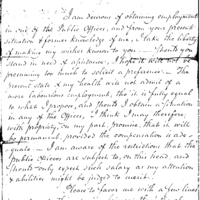 I am desirous of obtaining employment
in one of the Public Offices, and from your present
situation & former knowledge of me, I take the liberty
of making my wishes known to you — Should you
stand in need of assistance, I hope it will not be
presuming too much to solicit a preference — The
present state of my health will not admit of a
more laborious employment, tho' it is fully equal
to what I propose, and should I obtain a situation
in any of the Offices, I think I may therefore,
with propriety, on my part, promise, that it will
be permanent, provided the compensation is ade-
quate — I am aware of the restrictions that the
Public Offices are subject to, on this head, and
should only expect such salary as my attention
& abilities might be judged to merit.
Please to favor me with a few lines